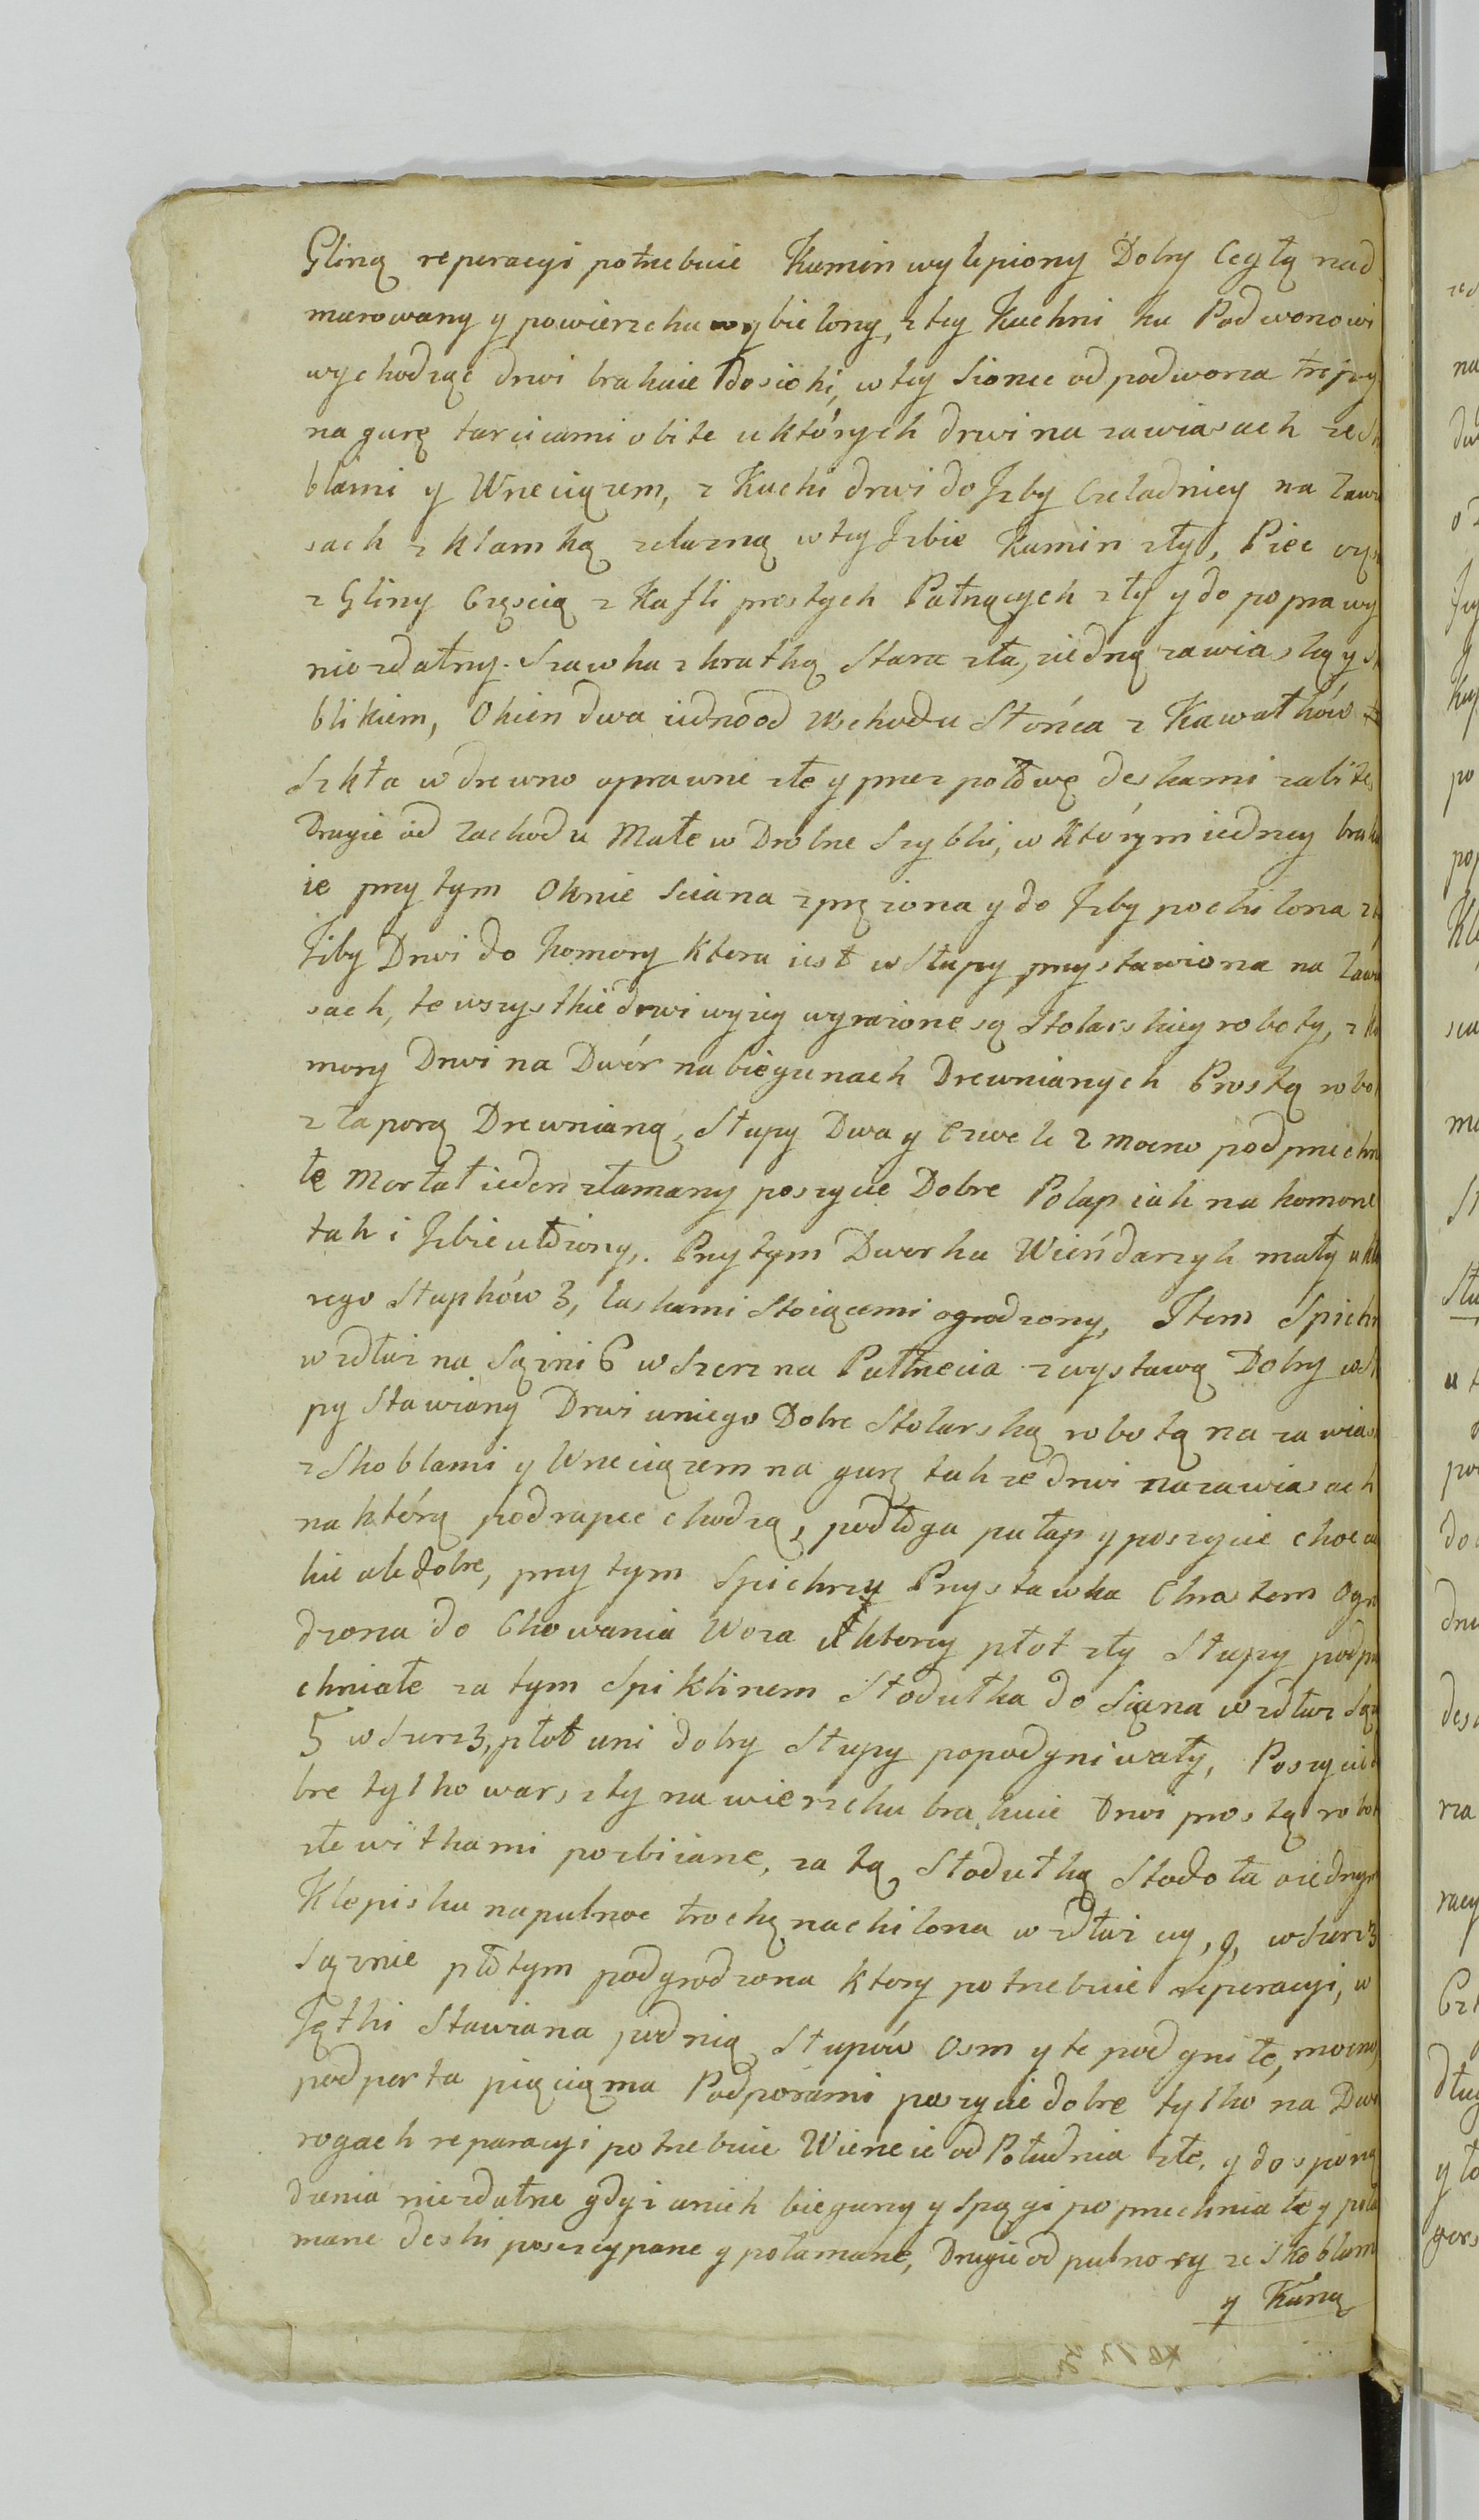 Gliną reperacyi potrzebuie Kumin wylepiony Dobry Cegłą nad
murowany y powierzchu wybielony, z tey Kuchni ku Podworzowi
wychodząc drwi brakuie do sioki, w tey Sionce od podworza
na gurę tarcicami obite u których drwi na zawiasach ze Sk
blami y Wrzeciązem, z Kuchi drwi do Jzby Czeladniey na Zawia
sach z klamką zelazną w tey Jzbie Kumin zły, Piec
z Gliny Częscią z Kafli prostych Patrzących zły y do poprawy
niezdatny. Szawka z kratką Stara zła, z iedną zawiaską y s
blikiem, Okien dwa iedno od Wschodu Słońca z Kawałków
Szkła w drewno oprawne złe y przez połowę deskami zabite,
Drugie od Zachodu Małe w Drobne Szybki, w którym iedney braku
ie przy tym Oknie Sciana zprężona y do Jzby pochilona z
Jzby Drwi do Komory ktora iest w Słupy przystawiona na Zawia
sach, te wszystkie drwi wyżey wyrażone są Stolarskiey roboty, z ko
mory Drwi na Dwór na biegunach Drewnianych Prostą robot
z zaporą Drewnianą, Słupy Dwa y Czwele 2 mocno podpruchn
łe Murłat ieden złamany poszycie Dobre Polap iak na komorze
tak i Jzbie ułożony. Przy tym Dworku Wieńdarzyk mały u któ
rego Słupków 3, laskami Stoiącemi ogrodzony, Item Spichr
wzdłuż na Sążni 6 w Szerz na Pułtrzecia z wystawą Dobry w Słu
py Stawiany Drwi u niego Dobre Stolarską robotą na zawias
z Skoblami y Wrzeciązem na gurę takze drwi na zawiasach
na którą po drapce chodzą, podłoga pułap y poszycie
kie ale dobre, przy tym Spichrzy Przystawka Chrastem Ogro
dzona do Chowania Woza u ktorey płot zły Słupy podpru
chniałe za tym Spiklirzem Stodułka do Siana wzdłuz Sąż
5 w Szerz 3, płot u ni dobry Słupy popodgniwały, Poszycie d
bre tylko warszty na wierzchu brakuie Drwi prostą robot
złe witkami pozbijane, za tą Stodułką Stodoła o iednym
Klepisku na pulnoc trochę nachilona wzdłuż ey, 9, w Szerz 3
Sążnie płotym podgrodzona ktory potrzebuie reperacyi, w
Jętki Stawiana pod nią Słupów Osm y te podgniłe, mocno
podparta pięcięma Podporami poszycie dobre tylko na Dwu
rogach reparacyi potrzebuie Wierzeie od Południa złe, y do sporzą
dzenia niezdatne gdyż u nich bieguny y Spągi popruchniałe y poła
mane deski poszczypane y połamane, Drugie od pulnocy ze Skoblem
y Kuną